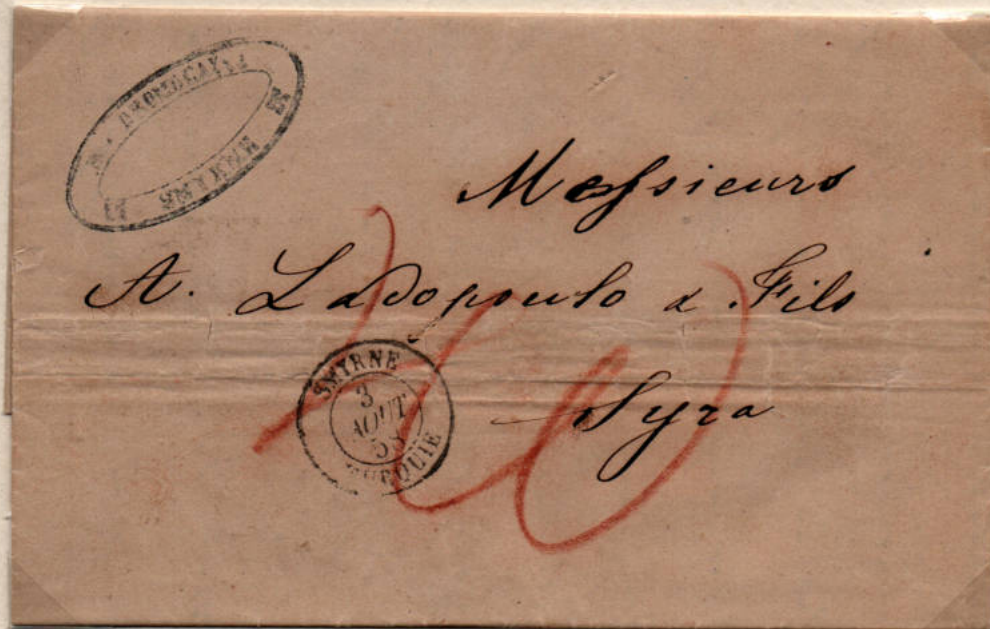 SMYRNE
Messieurs
A. Ladopoulo & Fils
Syra
SMYRNE
3
AOUT
TURQUIE